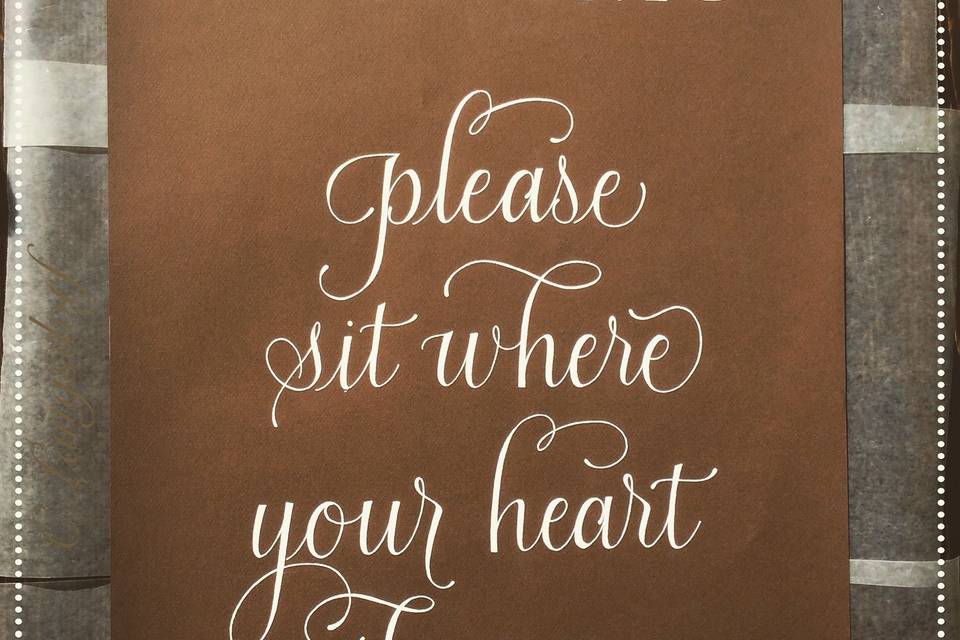 please
sit where
your heart